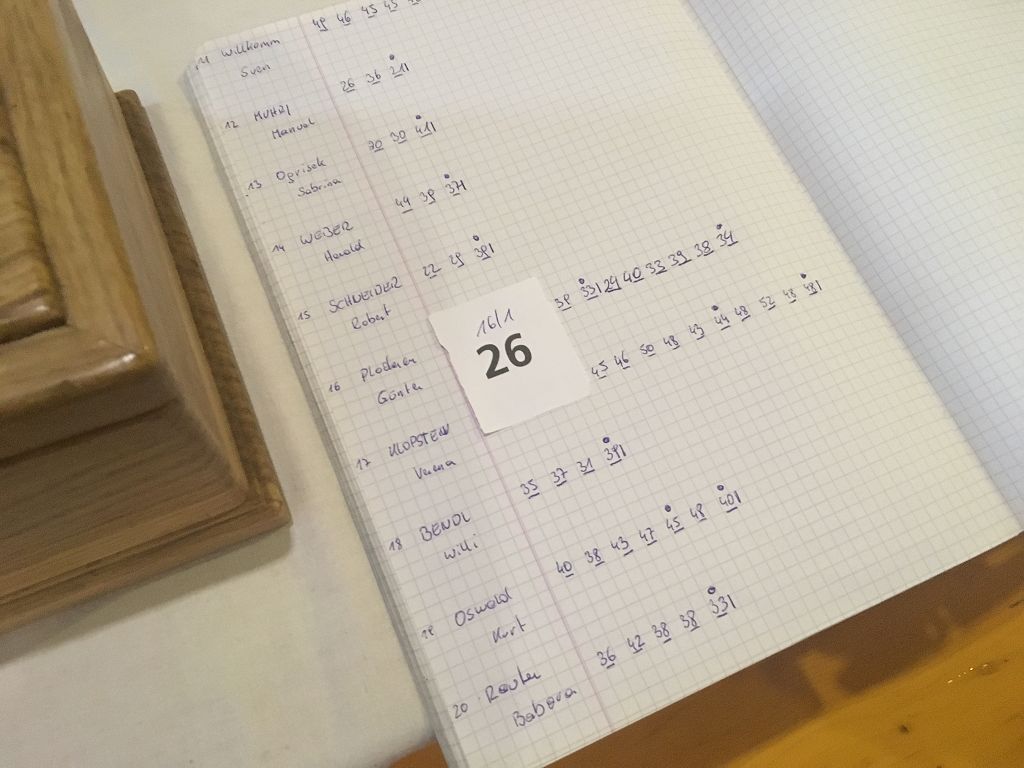 49 46 45 45
11 Willkomm
Sven
26 36 211
12 MUHRI
Manuel
30 30 411
13 Ogrisek
Sabrina
44 39 371
14 WEBER
Harald
22 29 391
15 SCHNEIDER
Robert
38 331 29 40 33 39 38 34
16/1
26
16 Ploderer
Günter
45 46 50 48 43 44 48 52 48 481
17 KLOPSTEIN
Verena
35 37 31 391
18 BENDL
Willi
40 38 43 47 45 48 401
19 Oswald
Kurt
36 42 38 38 331
20 Reuter